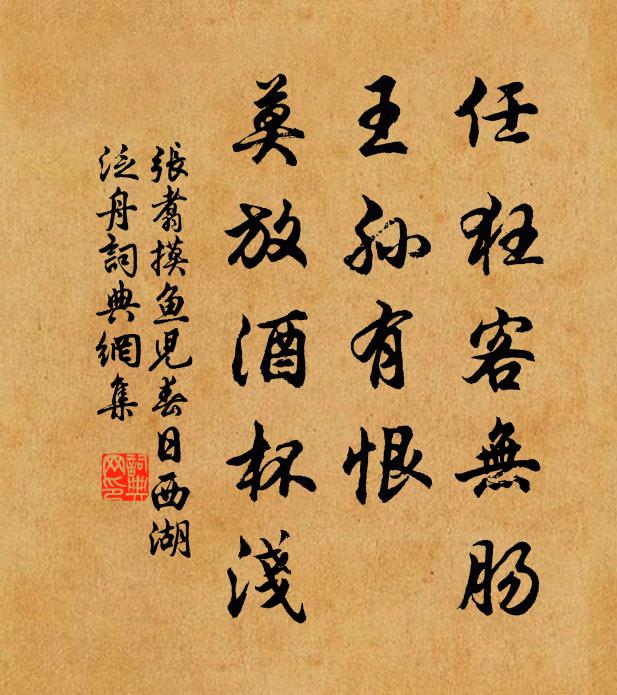 任狂客無腸
王孫有恨
莫放酒杯淺
張翥摸魚兒春日西湖
泛舟詞典網集
詞典網印